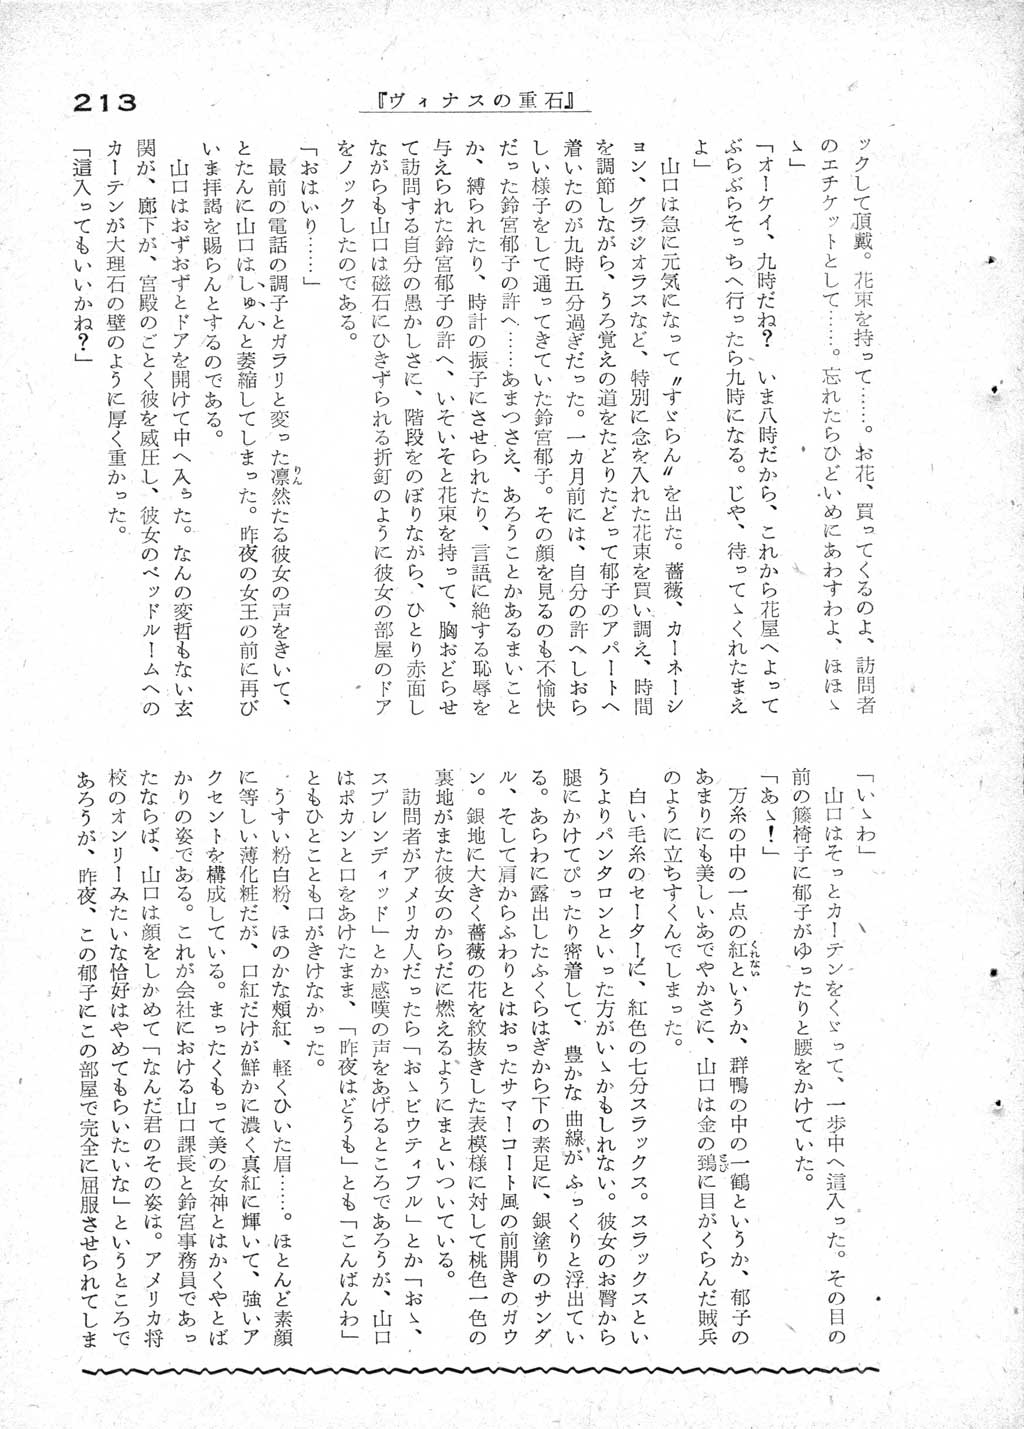 213
『ヴィナスの重石』
ックして頂戴。花束を持って……。お花、買ってくるのよ、訪問者
のエチケットとして……。忘れたらひどいめにあわすわよ、ほほゝ
ゝ」
「オーケイ、九時だね？　いま八時だから、これから花屋へよって
ぶらぶらそっちへ行ったら九時になる。じや、待ってゝくれたまえ
よ」
　山口は急に元気になって〝すゞらん〟を出た。薔薇、カーネーシ
ョン、グラジオラスなど、特別に念を入れた花束を買い調え、時間
を調節しながら、うろ覚えの道をたどりたどって郁子のアパートへ
着いたのが九時五分過ぎだった。一カ月前には、自分の許へしおら
しい様子をして通ってきていた鈴宮郁子。その顔を見るのも不愉快
だった鈴宮郁子の許へ……あまつさえ、あろうことかあるまいこと
か、縛られたり、時計の振子にさせられたり、言語に絶する恥辱を
与えられた鈴宮郁子の許へ、いそいそと花束を持って、胸おどらせ
て訪問する自分の愚かしさに、階段をのぼりながら、ひとり赤面し
ながらも山口は磁石にひきずられる折釘のように彼女の部屋のドア
をノックしたのである。
「おはいり……」
　最前の電話の調子とガラリと変った凛然たる彼女の声をきいて、
りん
とたんに山口はしゅんと萎縮してしまった。昨夜の女王の前に再び
いま拝謁を賜らんとするのである。
　山口はおずおずとドアを開けて中へ入った。なんの変哲もない玄
関が、廊下が、宮殿のごとく彼を威圧し、彼女のベッドルームへの
カーテンが大理石の壁のように厚く重かった。
「這入ってもいいかね？」
「いゝわ」
　山口はそっとカーテンをくゞって、一歩中へ這入った。その目の
前の籐椅子に郁子がゆったりと腰をかけていた。
「あゝ！」
　万糸の中の一点の紅というか、群鴨の中の一鶴というか、郁子の
くれない
あまりにも美しいあでやかさに、山口は金の鵄に目がくらんだ賊兵
とび
のように立ちすくんでしまった。
　白い毛糸のセーターに、紅色の七分スラックス。スラックスとい
うよりパンタロンといった方がいゝかもしれない。彼女のお臀から
腿にかけてぴったり密着して、豊かな曲線がふっくりと浮出てい
る。あらわに露出したふくらはぎから下の素足に、銀塗りのサンダ
ル、そして肩からふわりとはおったサマーコート風の前開きのガウ
ン。銀地に大きく薔薇の花を紋抜きした表模様に対して桃色一色の
裏地がまた彼女のからだに燃えるようにまといついている。
　訪問者がアメリカ人だったら「おゝビウティフル」とか「おゝ、
スプレンディッド」とか感嘆の声をあげるところであろうが、山口
はポカンと口をあけたまま、「昨夜はどうも」とも「こんばんわ」
ともひとことも口がきけなかった。
　うすい粉白粉、ほのかな頬紅、軽くひいた眉……。ほとんど素顔
に等しい薄化粧だが、口紅だけが鮮かに濃く真紅に輝いて、強いア
クセントを構成している。まったくもって美の女神とはかくやとば
かりの姿である。これが会社における山口課長と鈴宮事務員であっ
たならば、山口は顔をしかめて「なんだ君のその姿は。アメリカ将
校のオンリーみたいな恰好はやめてもらいたいな」というところで
あろうが、昨夜、この郁子にこの部屋で完全に屈服させられてしま